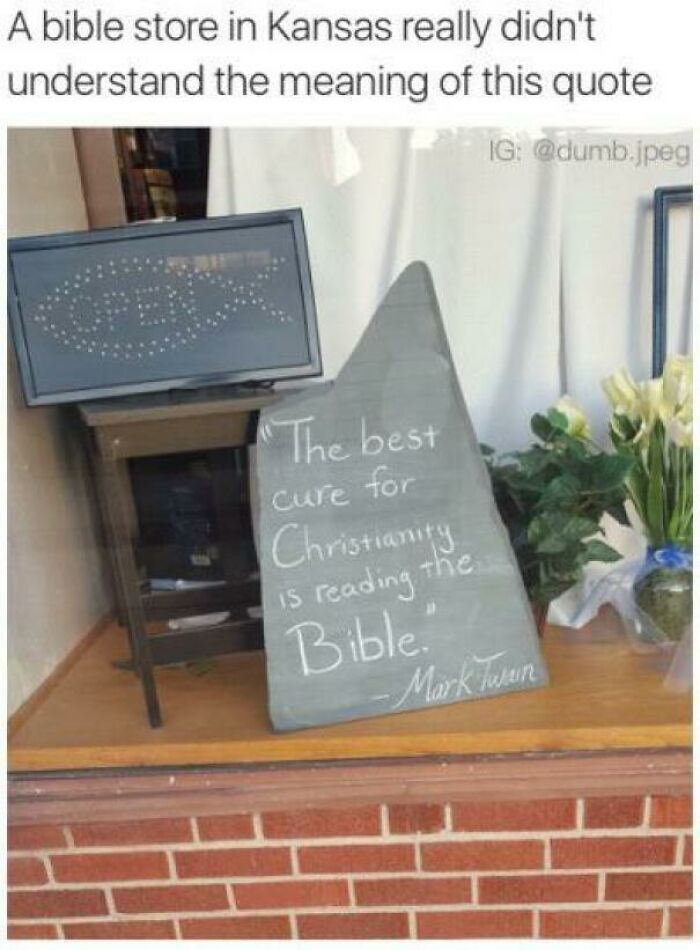 A bible store in Kansas really didn't
understand the meaning of this quote
IG: @dumb.jpeg
OPEN
"The best
cure for
Christianity
is reading the
Bible."
- Mark Twain